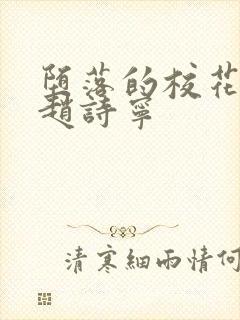 堕落的校花
趙詩寧
清寒細雨情何